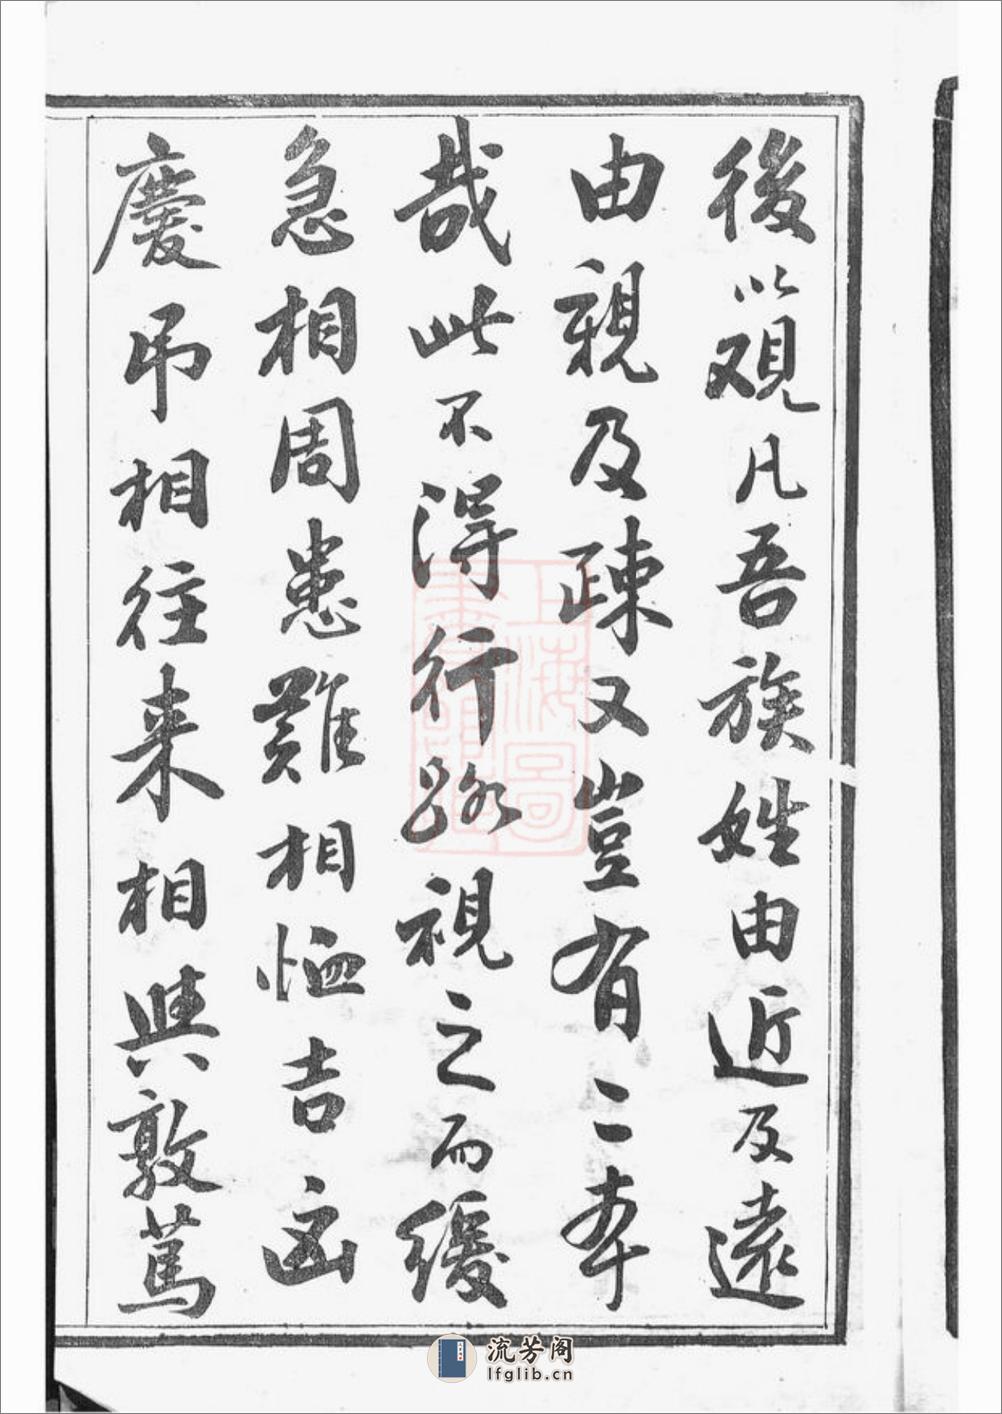 後以观凡吾族姓由近及遠
由親及疎又豈有二本
哉此不得行路視之而緩
急相周患難相恤吉凶
慶吊相往来相與敦篤
上海圖書館藏
流芳阁
lfglib.cn